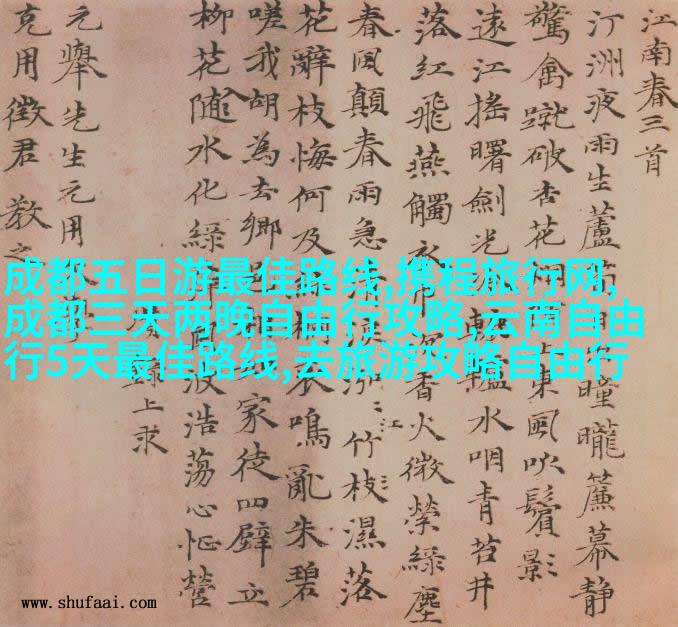 江南春三首
汀洲夜雨生蘆 曈曨簾幕靜
驚禽蹴破杏花 東風吹鬢影
遠江搖曙劍光 水咽青苔井
落紅飛燕觸 香火微縈綠塵
春風顛春雨急 竹枝濕落
江
花辭枝悔何及 鳴亂朱碧
嗟我胡為去鄉 家徒四壁立
柳花隨水化綠 浩蕩心怔營
錄上求
元舉先生元用
克用徵君 教之
成都五日游最佳路线,携程旅行网,
成都三天两晚自由行攻略,云南自由
行5天最佳路线,去旅游攻略自由行
www.shufaai.com